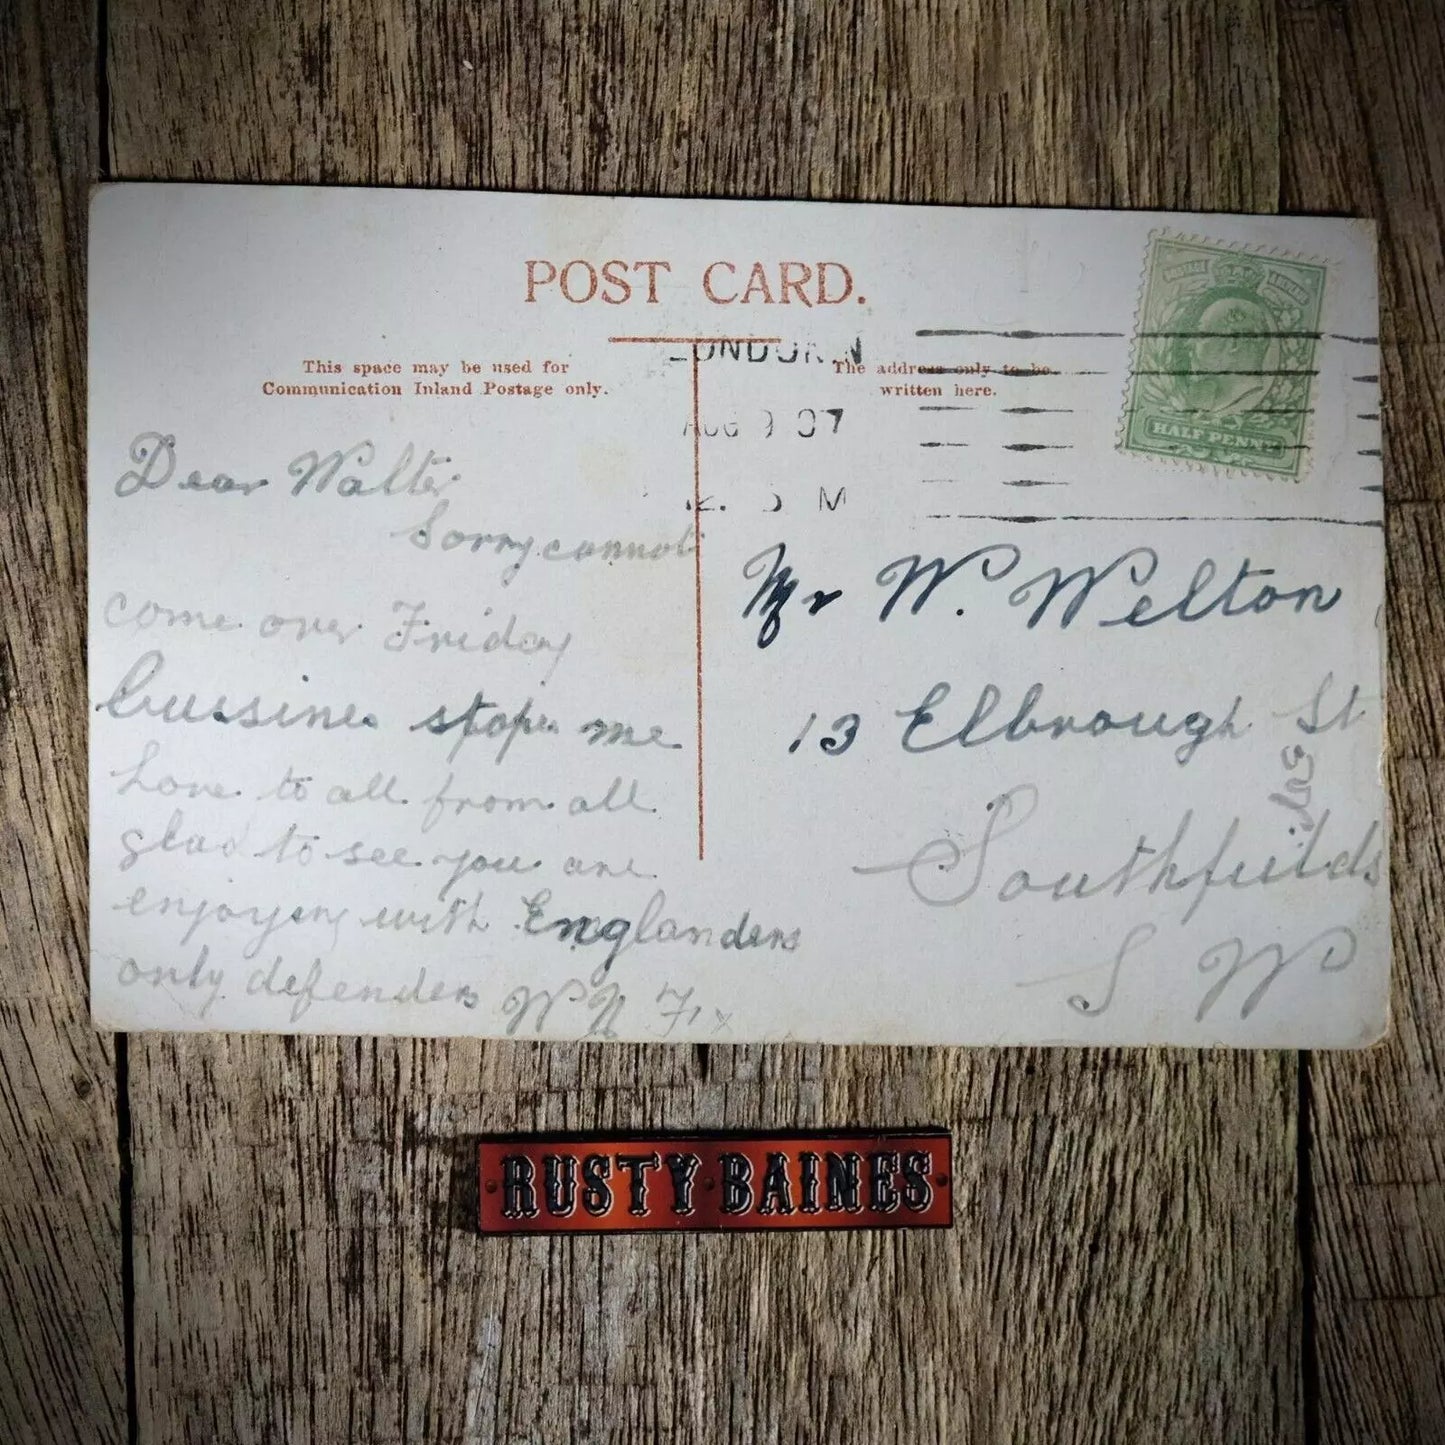 POST CARD.
This space may be used for
Communication Inland Postage only.
The address only to be
written here.
LONDON. N
AUG 9 07
12. M
HALF PENNY
Dear Walter
Sorry cannot
come over Friday
bussines stopes me
love to all from all
glad to see you are
enjoying with Englanders
only defenders W
Mr W. Welton
13 Elbrough St
Southfields
S W
RUSTY BAINES